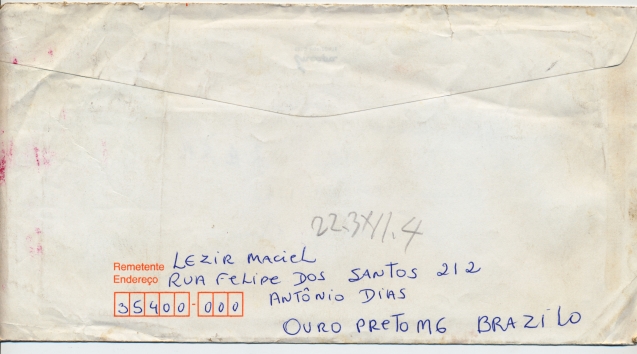 22.3X11.4
Remetente LEZIR MACIEL
Endereço RUA FELIPE DOS SANTOS 212
35400-000 ANTÔNIO DIAS
OURO PRETO MG BRAZILO